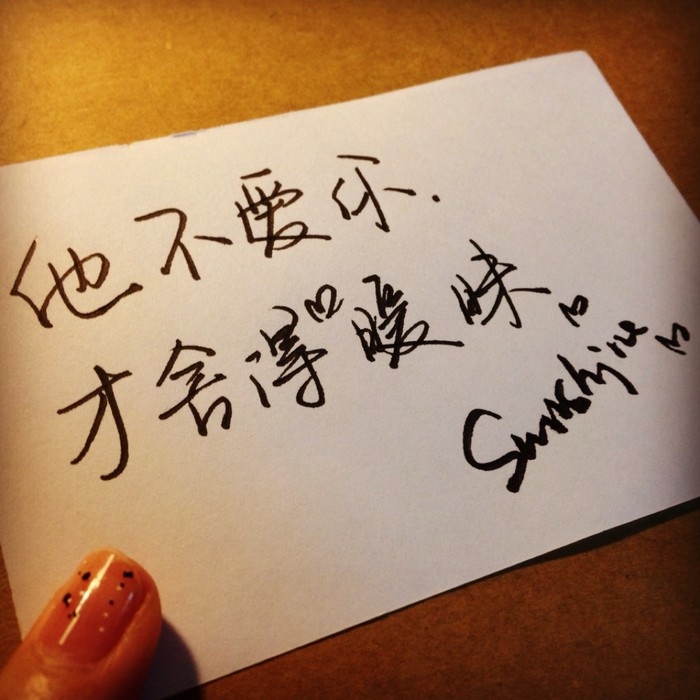 他不爱你.
才舍得暧昧
Sunshine